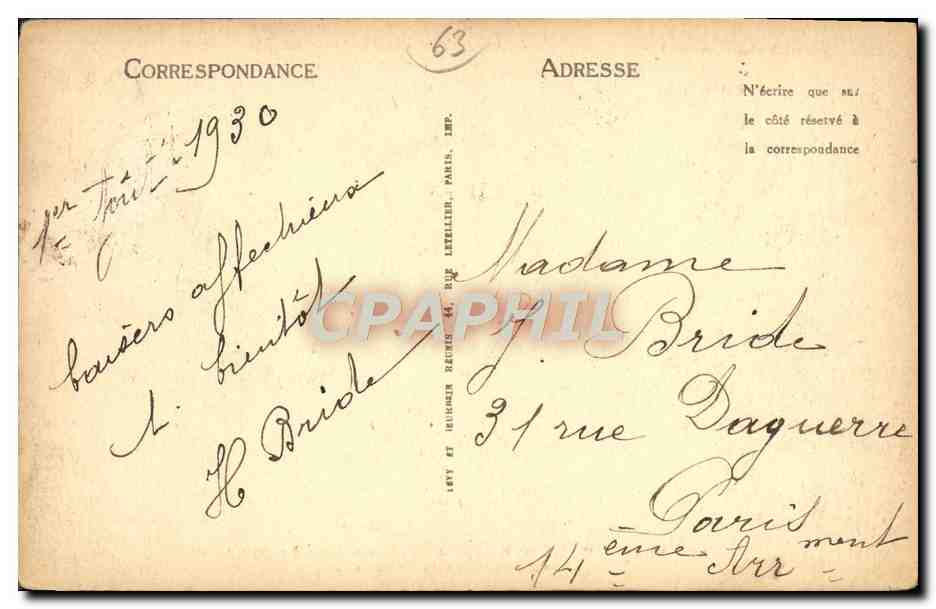 63
CORRESPONDANCE
1er Août 1930
baisers affectueux
bientôt
H Bride
LÉVY ET NEURDEIN RÉUNIS 44, RUE LETELLIER, PARIS, IMP.
ADRESSE
N'écrire que sur
le côté réservé à
la correspondance
Madame
J. Bride
31 rue Daguerre
Paris
14 ème Arrment
CPAPHIL